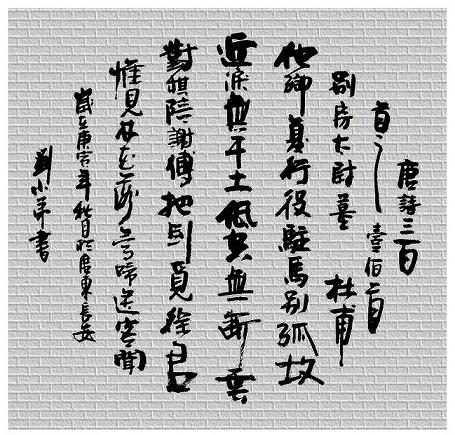 唐詩三百
首之一 壹佰首
別房太尉墓 杜甫
他鄉复行役駐馬別孤坟
近淚無干土低空無斷雲
對棋陪謝傅把劍覓徐君
惟見林花落鶯啼送客聞
歲在庚寅年秋月於廣東長安
劉小平書